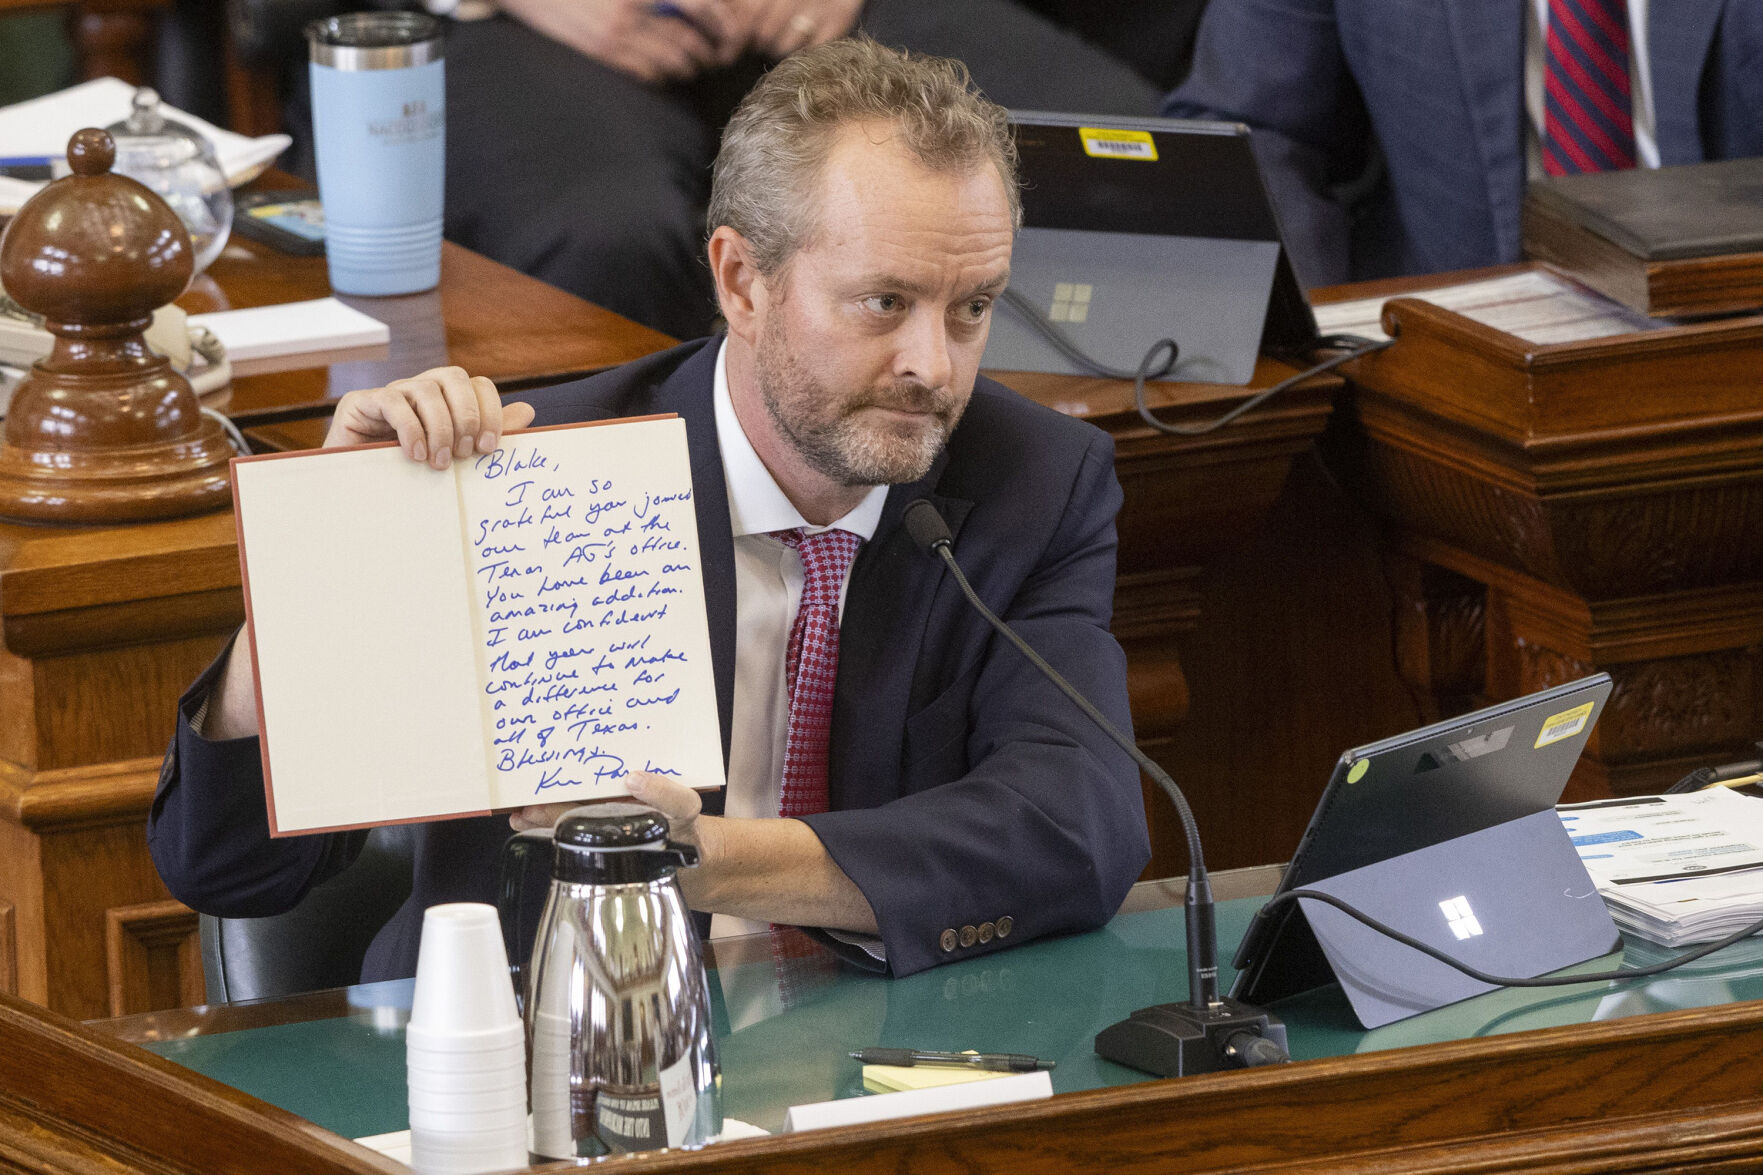 Blake,
I am so
grateful you joined
our team at the
Texas AG's office.
You have been an
amazing addition.
I am confident
that you will
continue to make
a difference for
our office and
all of Texas.
Blessings,
Ken Paxton